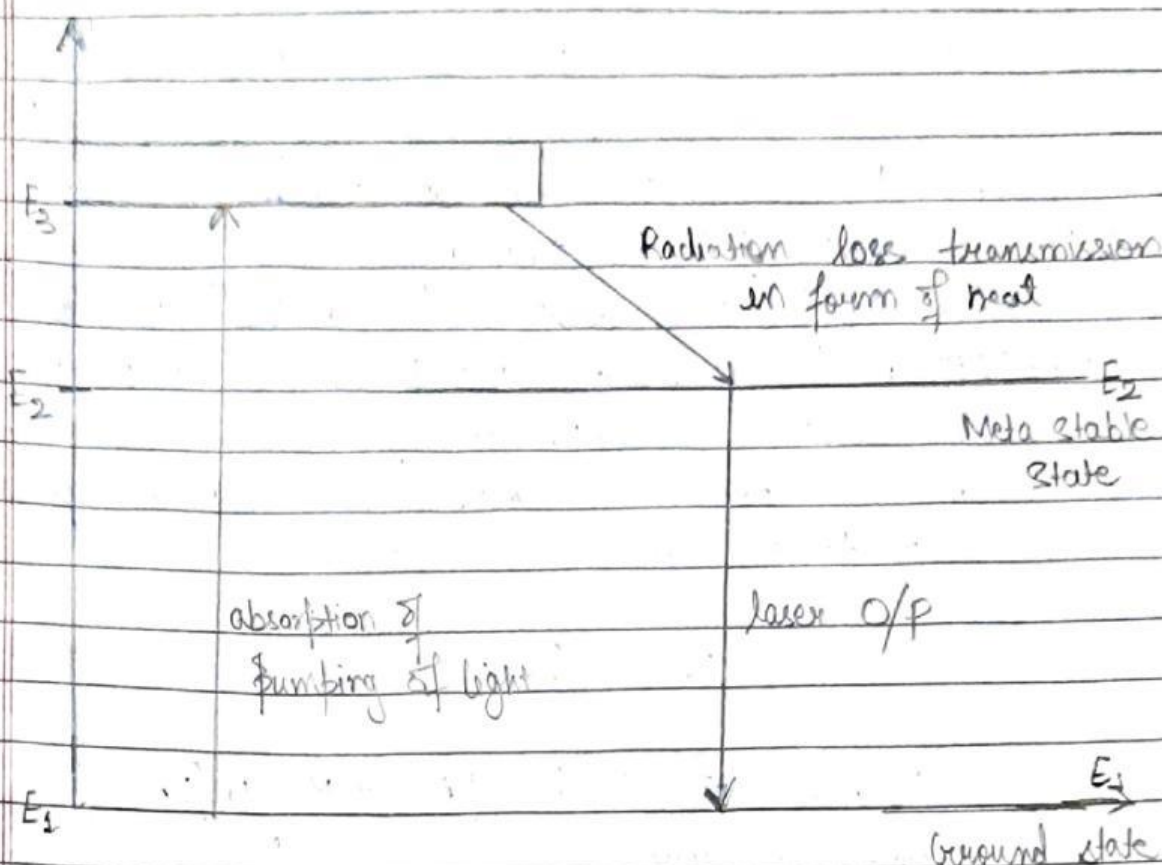 E3
Radiation loss transmission
in form of heat
E2
E2
Meta stable
State
absorption of
pumping of light
laser O/P
E1
E1
Ground state